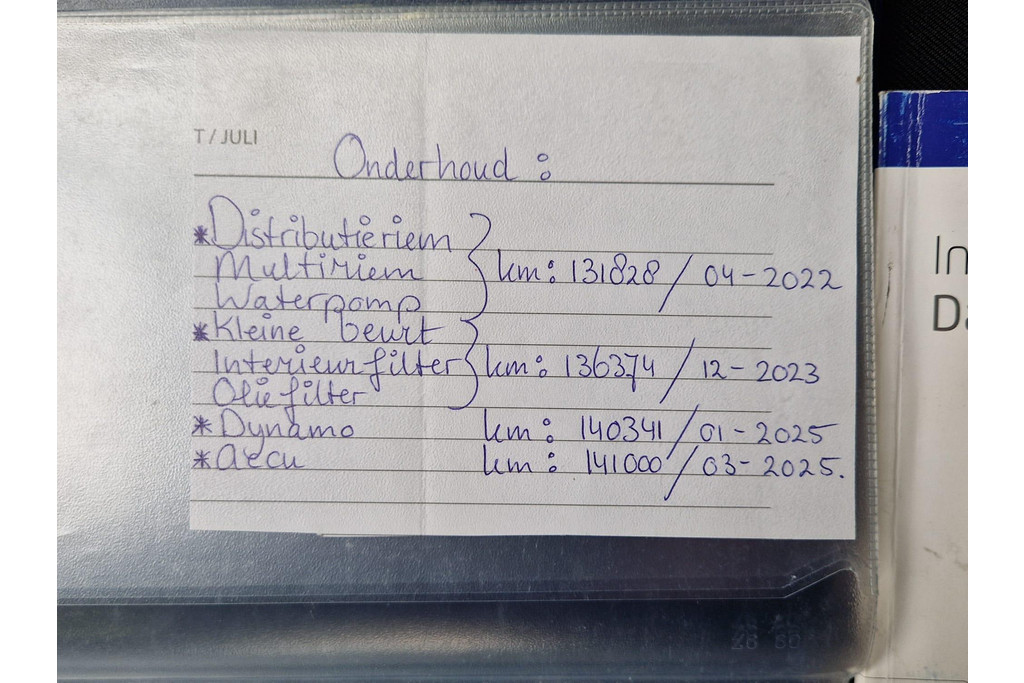 T/JULI
Onderhoud :
* Distributieriem
Multiriem km: 131828 / 04-2022
Waterpomp
* Kleine beurt
Interieurfilter km: 136374 / 12-2023
Oliefilter
* Dynamo km: 140341 / 01-2025
* accu km: 141000 / 03-2025.
In
Da